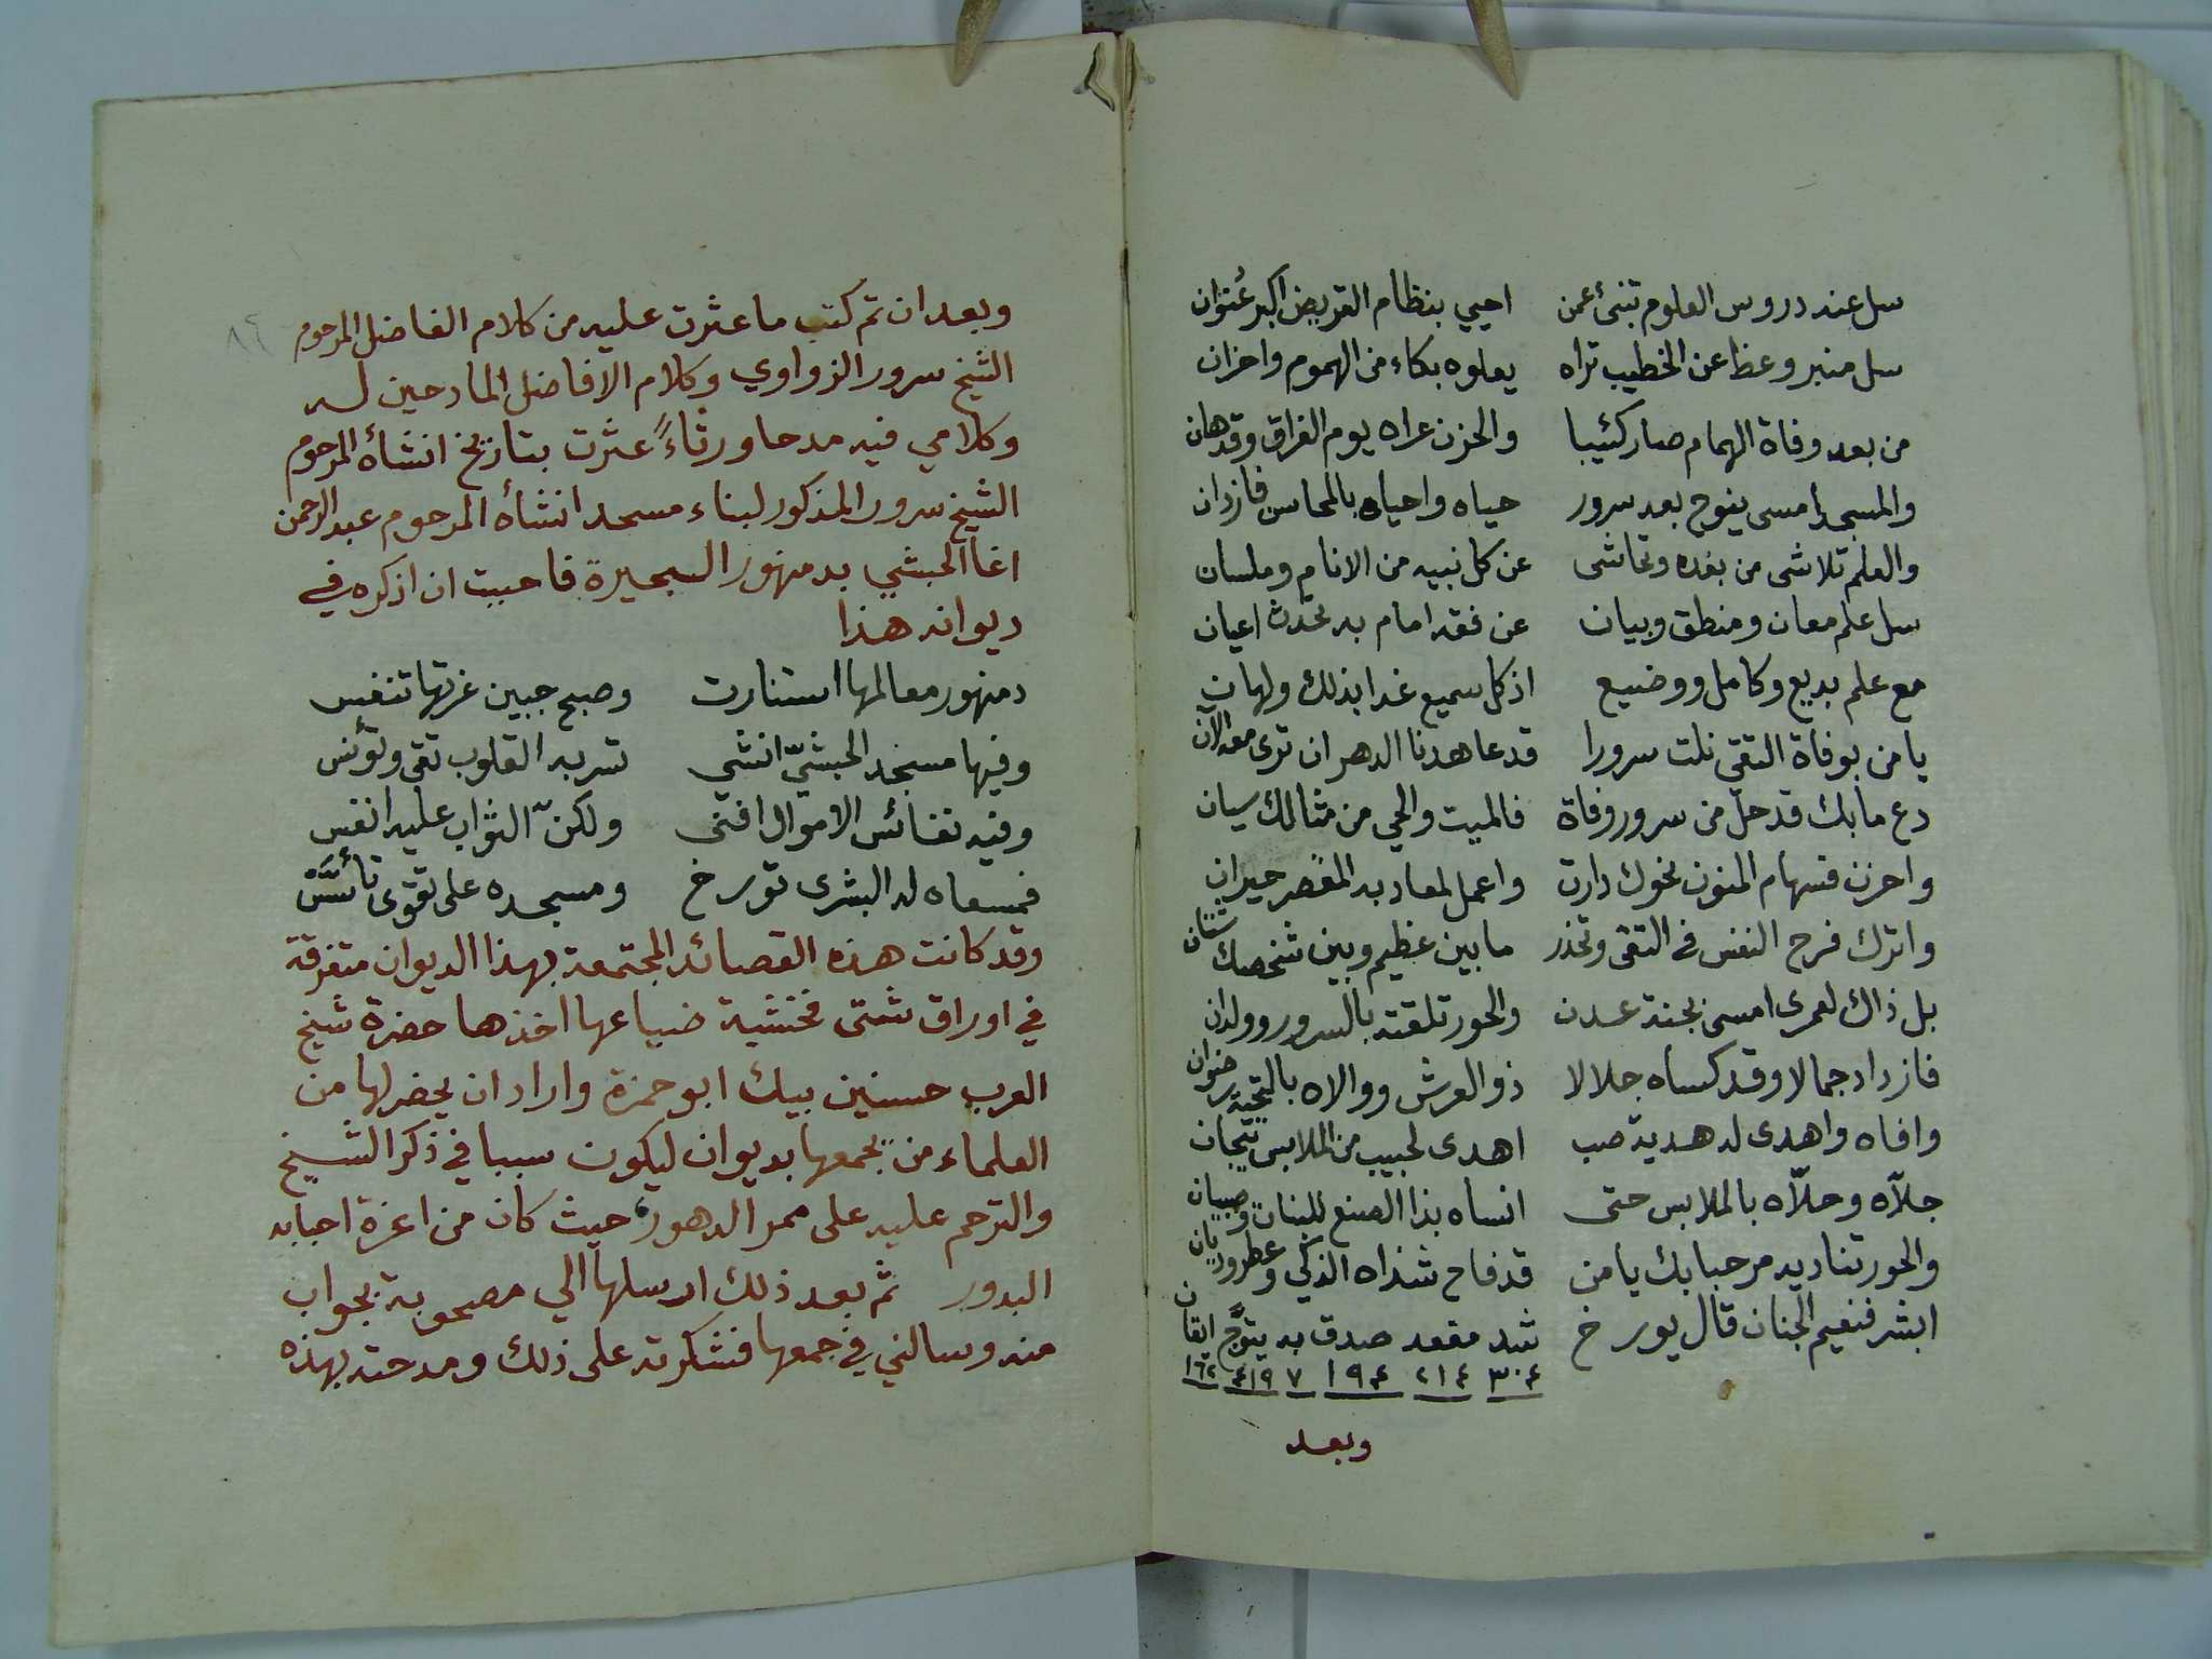 سل عند دروس العلوم تنبئ عمن احيي بنظام القريض اكبر عنوان
سل منبر وعظا عن الخطيب تراه يعلوه بكاء من الهموم واحزان
من بعد وفاة الهمام صار كئيبا والحزن عراه يوم الفراق وقد هان
والمسجد امسى ينوح بعد سرور حياه واحياه بالمحاسن فازدان
والعلم تلاشى من بعده وتحاشى عن كل نبيه من الانام وملسان
سل علم معان ومنطق وبيان عن فقد امام به تحدث اعيان
مع علم بديع وكامل ووضيع اذ كل سميع غدا بذلك ولهان
يا من بوفاة التقي نلت سرورا قد عاهدنا الدهر ان ترى معه الان
دع ما بك قد حل من سرور وفاة فالميت والحي من مثالك سيان
واحزن فسهام المنون نحوك دارت واعمل لمعاد به المقصر حيران
واترك فرح النفس في التقى وتحذر ما بين عظيم وبين شخصك شتان
بل ذاك لعمرى امسى بجنة عدن والحور تلقته بالسرور وولدان
فازداد جمالا وقد كساه جلالا ذو العرش ووالاه بالتحية رضوان
وافاه واهدى له هدية صب اهدى لحبيب من الملابس تيجان
جلّاه وحلّاه بالملابس حتى انساه بذا الصنع للبنات وصبيان
والحور تناديه مرحبا بك يا من قد فاح شذاه الذكي وعطر وديان
ابشر فنعيم الجنان قال يورخ شد مقعد صدق به يتوّج ايقان
٣٠٤ ٢١٤ ١٩٤ ٧ ٤١٩ ١٦٢
وبعد
٨٦
وبعد ان تم كتب ما عثرت عليه من كلام الفاضل المرحوم
الشيخ سرور الزواوي وكلام الافاضل المادحين له
وكلامي فيه مدحا ورثاءً عثرت بتاريخ انشأه المرحوم
الشيخ سرور المذكور لبناء مسجد انشأه المرحوم عبد الرحمن
اغا الحبشي بدمنهور البحيرة فاحببت ان اذكره في
ديوانه هذا
دمنهور معالمها استنارت وصبح جبين غرتها تنفس
وفيها مسجد الحبشيّ انشي تسر به القلوب تقى وتؤنس
وفيه نفائس الاموال افنى ولكنّ الثواب عليه انفس
فمسعاه له البشرى تورخ ومسجده على تقوى تأسّس
وقد كانت هذه القصائد المجتمعة بهذا الديوان متفرقة
في اوراق شتى فخشية ضياعها اخذها حضرة شيخ
العرب حسنين بيك ابو حمزة واراد ان يحضر لها من
العلماء من يجمعها بديوان ليكون سببا في ذكر الشيخ
والترحم عليه على ممر الدهور حيث كان من اعزة احبابه
البدور ثم بعد ذلك ارسلها الي مصحوبة بجواب
منه وسالني في جمعها فشكرته على ذلك ومدحته بهذه